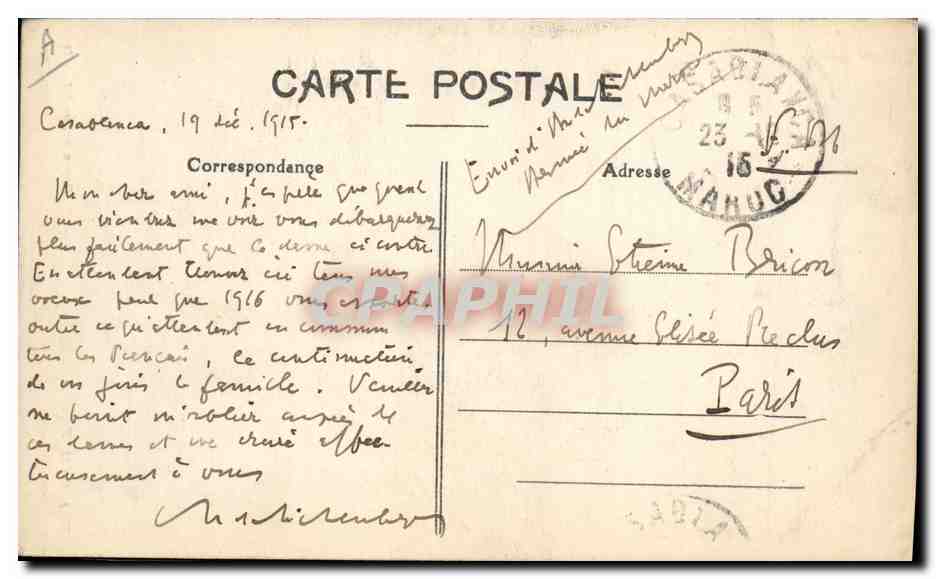 A
CARTE POSTALE
Casablanca, 19 déc. 1915.
Envoi d'
Armée du Maroc
CASABLANCA
23
15
MAROC
Correspondance
Adresse
Mon cher ami, j'espère que quand
vous viendrez me voir vous débarquerez
plus facilement que la dame ci contre
En attendant trouvez ici tous mes
voeux pour que 1916 vous apporte
outre ce qu'attendent en commun
tous les Français, la continuation
de vos joies de famille. Veuillez
ne point m'oublier auprès de
ces dames et me croire affec-
tueusement à vous
Monsieur Etienne Bricon
12, avenue Elisée Reclus
Paris
CPAPHIL
SABLA